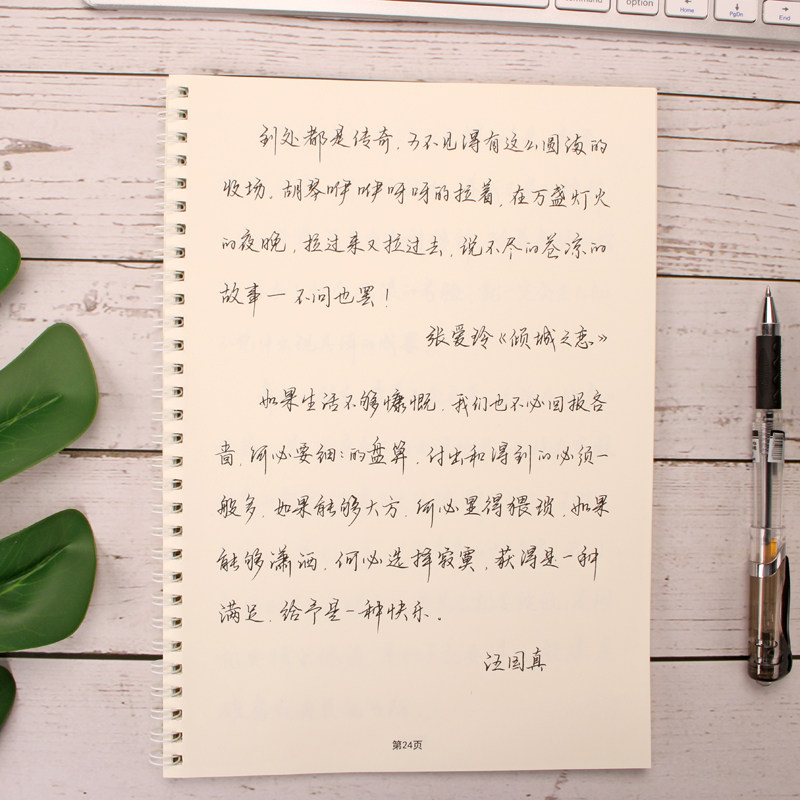 command
option
Home
PgDn
End
到处都是传奇,可不见得有这么圆满的
收场,胡琴咿咿呀呀的拉着,在万盏灯火
的夜晚,拉过来又拉过去,说不尽的苍凉的
故事——不问也罢!
张爱玲《倾城之恋》
如果生活不够慷慨,我们也不必回报吝
啬,何必要细:的盘算,付出和得到的必须一
般多,如果能够大方,何必显得猥琐,如果
能够潇洒,何必选择寂寞,获得是一种
满足,给予是一种快乐。
汪国真
第24页